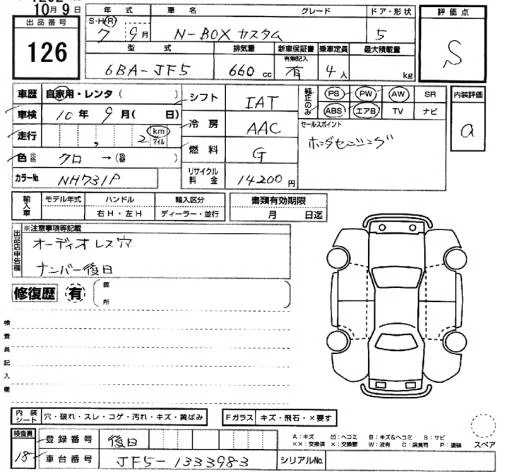 10月9日
出品番号 126
年式 車名 グレード ドア・形状 評価点
S・H(R) 7年 9月 N-BOX カスタム 5 S
型式 排気量 新車保証書 乗車定員 最大積載量
有無記入
6BA-JF5 660cc 有 4人 kg
車歴 自家用・レンタ( ) シフト IAT PS PW AW SR 内装評価
ABS エアB TV ナビ a
車検 10年 9月( 日) 冷房 AAC セールスポイント
走行 , 2 km マイル 燃料 G ホンダセンシング
色 クロ →( )
リサイクル料金 14200円
カラーNo NH731P
輸入車 モデル年式 ハンドル 輸入区分 書類有効期限
右H・左H ディーラー・並行 月 日迄
出品店申告欄 ※注意事項等記載
オーディオレス穴
ナンバー後日
修復歴 有 箇所
検査員記入欄
内装シート 穴・破れ・スレ・コゲ・汚れ・キズ・黄ばみ Fガラス キズ・飛石・×要す
検査員 18 登録番号 後日
車台番号 JF5-1333983 シリアルNo.
A:キズ U:ヘコミ B:キズ&ヘコミ S:サビ
XX:交換済 X:交換要 W:波有 C:腐食 P:塗装
スペア